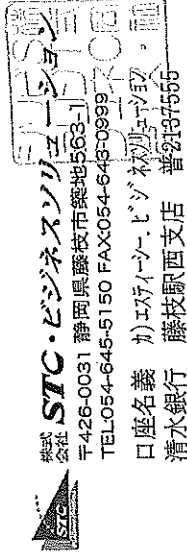 株式会社 STC・ビジネスソリューション
〒426-0031 静岡県藤枝市築地563-1
TEL054-645-5150 FAX054-643-0999
口座名義 カ)エスティーシー.ビジネスソリューション
清水銀行 藤枝駅西支店 普2137555
STC